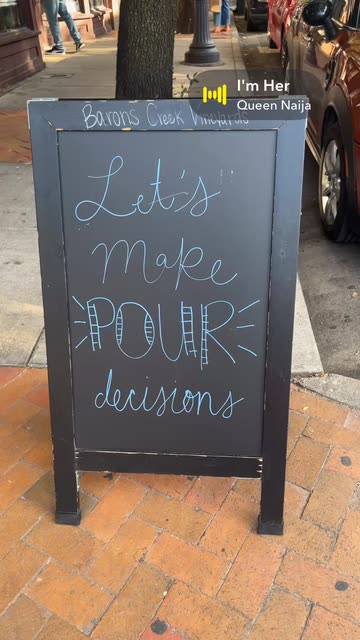 I'm Her
Queen Naija
Barons Creek Vineyards
Let's
make
POUR
decisions